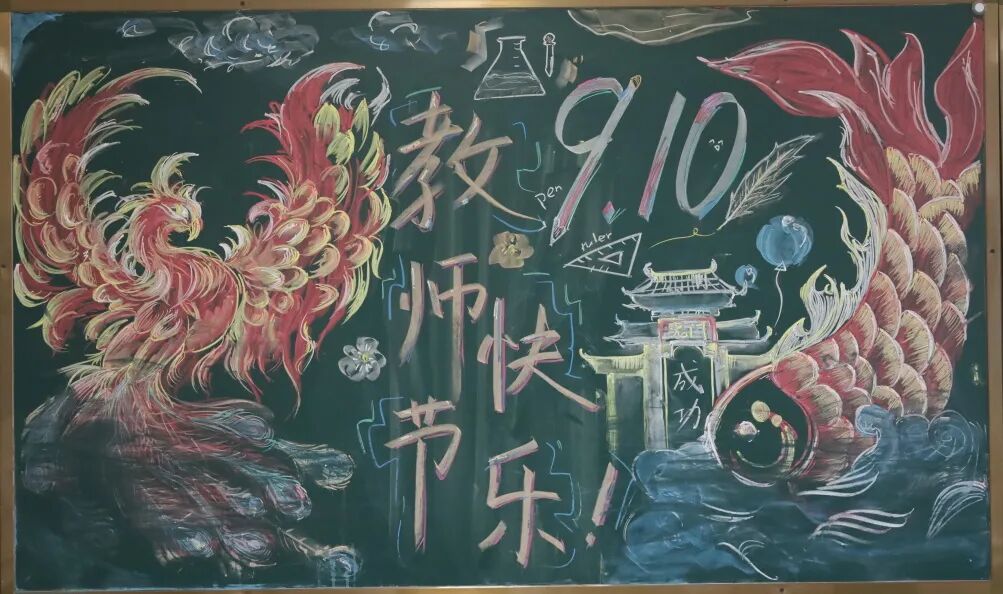 教师节
快乐！
9.10
pen
ruler
成功